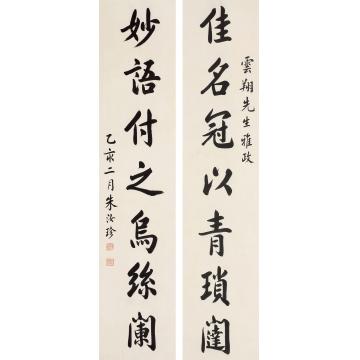 雲翔先生雅政
佳名冠以青瑣闥
妙語付之烏絲闌
乙亥二月朱汝珍